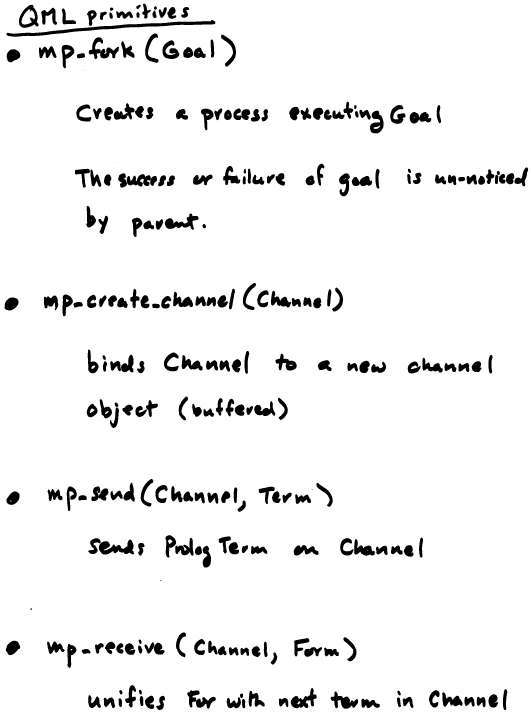 QML primitives
• mp-fork (Goal)
Creates a process executing Goal
The success or failure of goal is un-noticed
by parent.
• mp-create-channel (Channel)
binds Channel to a new channel
object (buffered)
• mp-send (Channel, Term)
sends Prolog Term on Channel
• mp-receive (Channel, Form)
unifies For with next term in Channel